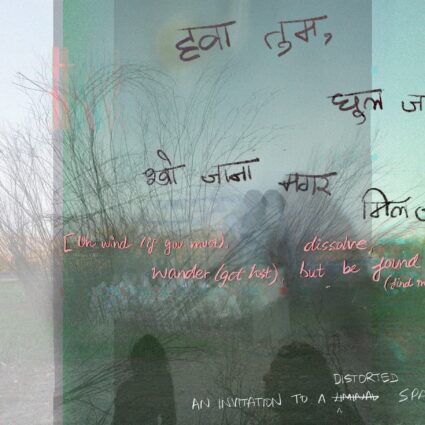 हवा तुम,
घुल ज
खो जाना मगर
मिल
[Oh wind (if you must), dissolve,
wander (get lost), but be found
(find m
DISTORTED
AN INVITATION TO A LIMINAL SPA